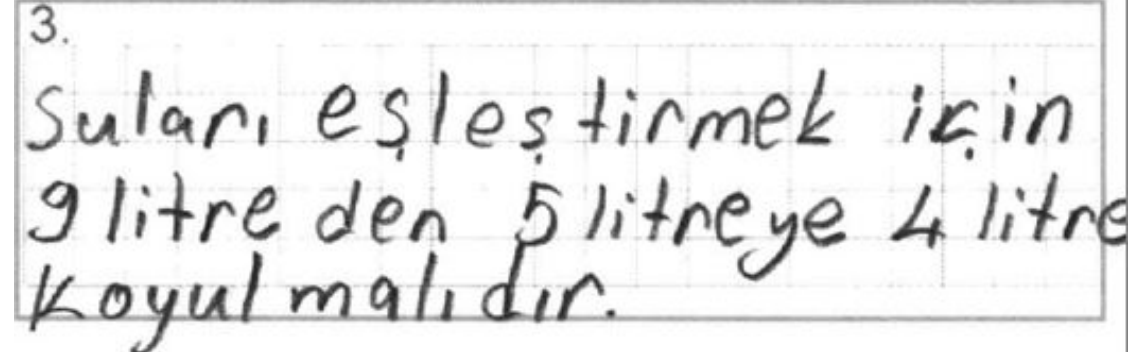 3.
Suları eşleştirmek için
9 litre den 5 litreye 4 litre
koyulmalıdır.